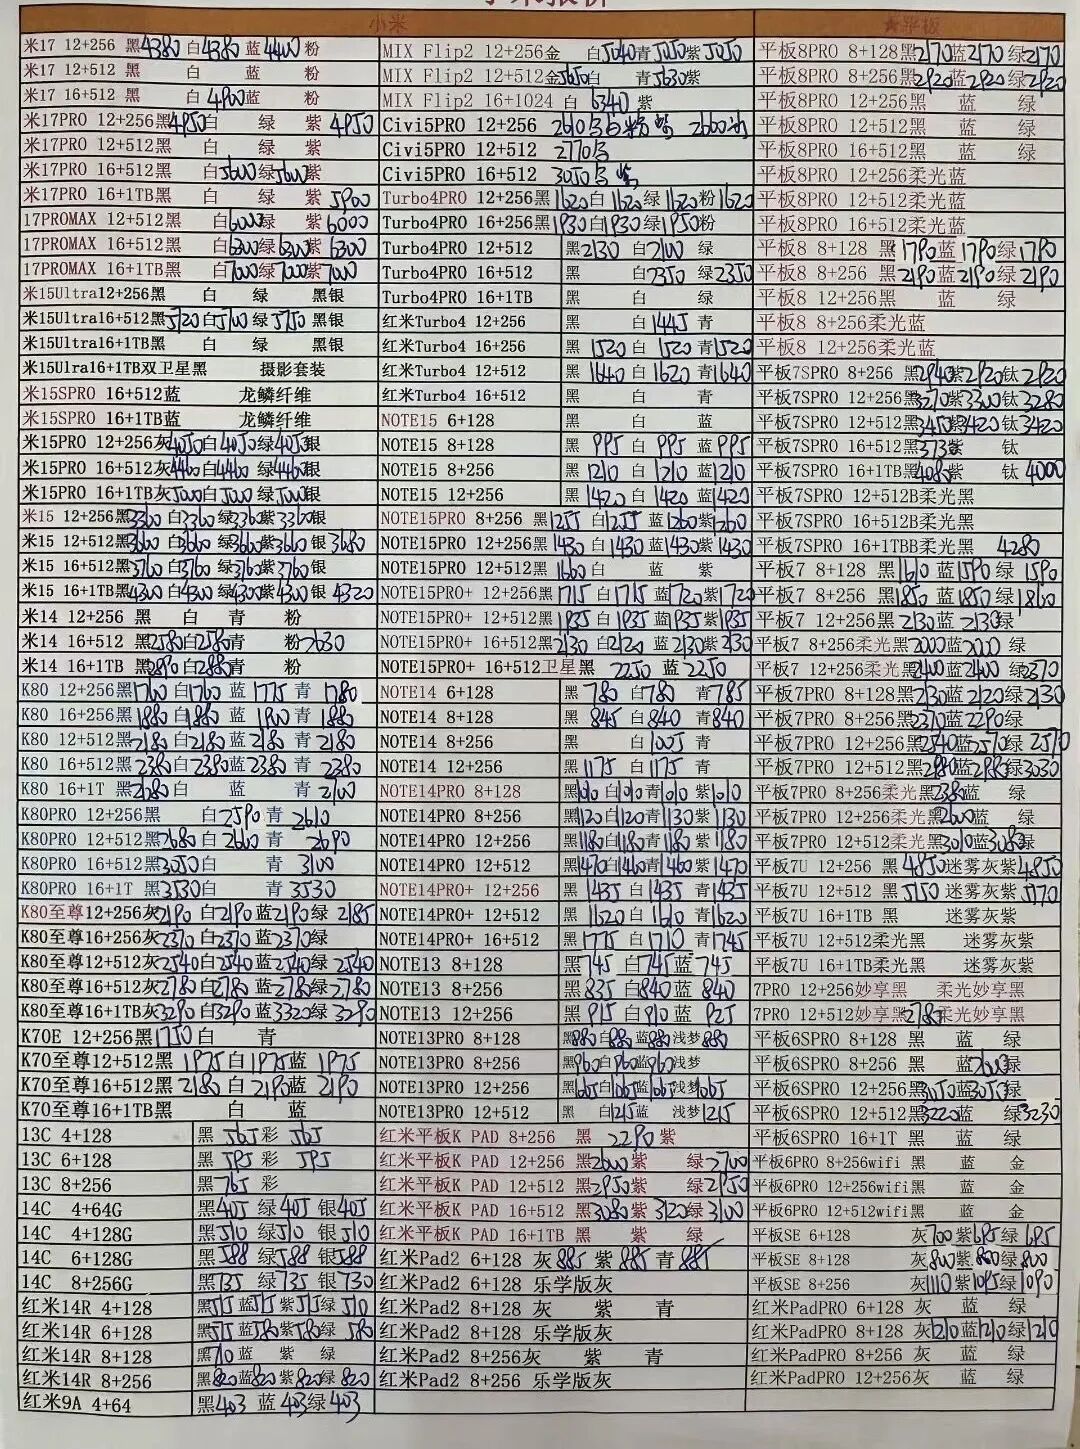 小米
米17 12+256 黑4380 白4380 蓝4400 粉
米17 12+512 黑 白 蓝 粉
米17 16+512 黑 白4900蓝 粉
米17PRO 12+256黑4950白 绿 紫4950
米17PRO 12+512黑 白 绿 紫
米17PRO 16+512黑 白5600绿5600紫
米17PRO 16+1TB黑 白 绿 紫5900
17PROMAX 12+512黑 白6000绿 紫6000
17PROMAX 16+512黑 白6300绿6300紫6300
17PROMAX 16+1TB黑 白7000绿7000紫7000
米15Ultra12+256黑 白 绿 黑银
米15Ultra16+512黑5720白5700绿5750黑银
米15Ultra16+1TB黑 白 绿 黑银
米15Ulra16+1TB双卫星黑 摄影套装
米15SPRO 16+512蓝 龙鳞纤维
米15SPRO 16+1TB蓝 龙鳞纤维
米15PRO 12+256灰4050白4050绿4050银
米15PRO 16+512灰4460白4460绿4460银
米15PRO 16+1TB灰5000白5000绿5000银
米15 12+256黑3360白3360绿3360紫3360银
米15 12+512黑3660白3660绿3660紫3660银3680
米15 16+512黑3760白3760绿3760紫3760银
米15 16+1TB黑4300白4300绿4300紫4300银4320
米14 12+256 黑 白 青 粉
米14 16+512 黑2580白2580青 粉2630
米14 16+1TB 黑2890白2880青 粉
K80 12+256黑1760白1760蓝1775青1780
K80 16+256黑1880白1880蓝1900青1880
K80 12+512黑2180白2180蓝2180青2180
K80 16+512黑2380白2380蓝2380青2380
K80 16+1T 黑2780白 蓝 青2700
K80PRO 12+256黑 白2590青2610
K80PRO 12+512黑2680白2660青2690
K80PRO 16+512黑3050白 青3100
K80PRO 16+1T 黑3530白 青3530
K80至尊12+256灰2190白2190蓝2190绿2185
K80至尊16+256灰2370白2370蓝2370绿
K80至尊12+512灰2540白2540蓝2540绿2540
K80至尊16+512灰2780白2780蓝2780绿2780
K80至尊16+1TB灰3290白3290蓝3320绿3290
K70E 12+256黑1750白 青
K70至尊12+512黑1975白1975蓝1975
K70至尊16+512黑2180白2190蓝2190
K70至尊16+1TB黑 白 蓝
13C 4+128 黑565彩565
13C 6+128 黑595彩595
13C 8+256 黑765彩
14C 4+64G 黑405绿405银405
14C 4+128G 黑510绿510银510
14C 6+128G 黑588绿588银588
14C 8+256G 黑735绿735银730
红米14R 4+128 黑515蓝515紫515绿510
红米14R 6+128 黑575蓝580紫580绿580
红米14R 8+128 黑710蓝 紫 绿
红米14R 8+256 黑820蓝820紫820绿820
红米9A 4+64 黑403蓝403绿403
MIX Flip2 12+256金 白5040青5050紫5050
MIX Flip2 12+512金5650白 青5630紫
MIX Flip2 16+1024 白6340紫
Civi5PRO 12+256 2610
Civi5PRO 12+512 2770
Civi5PRO 16+512 3050
Turbo4PRO 12+256黑1620白1620绿1620粉1620
Turbo4PRO 16+256黑1930白1930绿1950粉
Turbo4PRO 12+512 黑2130白2100绿
Turbo4PRO 16+512 黑 白2350绿2350
Turbo4PRO 16+1TB 黑 白 绿
红米Turbo4 12+256 黑 白1445青
红米Turbo4 16+256 黑1520白1520青1520
红米Turbo4 12+512 黑1640白1620青1640
红米Turbo4 16+512 黑 白 青
NOTE15 6+128 黑 白 蓝
NOTE15 8+128 黑995白995蓝995
NOTE15 8+256 黑1210白1210蓝1210
NOTE15 12+256 黑1420白1420蓝1420
NOTE15PRO 8+256 黑1255白1255蓝1260紫1260
NOTE15PRO 12+256黑1430白1430蓝1430紫1430
NOTE15PRO 12+512黑1660白 蓝 紫
NOTE15PRO+ 12+256黑1715白1715蓝1720紫1720
NOTE15PRO+ 12+512黑1935白1935蓝1935紫1935
NOTE15PRO+ 16+512黑2130白2120蓝2130紫2130
NOTE15PRO+ 16+512卫星黑 2250蓝2250
NOTE14 6+128 黑780白780青785
NOTE14 8+128 黑845白840青840
NOTE14 8+256 黑 白1005青
NOTE14 12+256 黑1175白1175青
NOTE14PRO 8+128 黑1010白1010青1010紫1010
NOTE14PRO 8+256 黑1120白1120青1130紫1130
NOTE14PRO 12+256 黑1180白1180青1180紫1180
NOTE14PRO 12+512 黑1470白1460青1460紫1470
NOTE14PRO+ 12+256 黑1435白1435青1435
NOTE14PRO+ 12+512 黑1620白1610青1620
NOTE14PRO+ 16+512 黑1775白1710青1745
NOTE13 8+128 黑745白745蓝745
NOTE13 8+256 黑835白840蓝840
NOTE13 12+256 黑915白910蓝925
NOTE13PRO 8+128 黑880白880蓝880浅梦880
NOTE13PRO 8+256 黑960白960蓝960浅梦
NOTE13PRO 12+256 黑1065白1065蓝1065浅梦1065
NOTE13PRO 12+512 黑 白1215蓝 浅梦1215
红米平板K PAD 8+256 黑2290紫
红米平板K PAD 12+256 黑2600紫 绿2700
红米平板K PAD 12+512 黑2950紫 绿2950
红米平板K PAD 16+512 黑3080紫3120绿3100
红米平板K PAD 16+1TB 黑 紫 绿
红米Pad2 6+128 灰885紫885青885
红米Pad2 6+128 乐学版灰
红米Pad2 8+128 灰 紫 青
红米Pad2 8+128 乐学版灰
红米Pad2 8+256灰 紫 青
红米Pad2 8+256 乐学版灰
★平板
平板8PRO 8+128黑2170蓝2170绿2170
平板8PRO 8+256黑2920蓝2920绿2920
平板8PRO 12+256黑 蓝 绿
平板8PRO 12+512黑 蓝 绿
平板8PRO 16+512黑 蓝 绿
平板8PRO 12+256柔光蓝
平板8PRO 12+512柔光蓝
平板8PRO 16+512柔光蓝
平板8 8+128 黑1790蓝1790绿1780
平板8 8+256 黑2190蓝2190绿2190
平板8 12+256 黑 蓝 绿
平板8 8+256柔光蓝
平板8 12+256柔光蓝
平板7SPRO 8+256 黑2940紫2920钛2920
平板7SPRO 12+256黑3270紫3300钛3280
平板7SPRO 12+512黑3450紫3420钛3420
平板7SPRO 16+512黑3735紫 钛
平板7SPRO 16+1TB黑4080紫 钛4000
平板7SPRO 12+512B柔光黑
平板7SPRO 16+512B柔光黑
平板7SPRO 16+1TBB柔光黑 4280
平板7 8+128 黑1610蓝1590绿1590
平板7 8+256 黑1850蓝1850绿1860
平板7 12+256黑2130蓝2130绿
平板7 8+256柔光黑2000蓝2020绿
平板7 12+256柔光黑2400蓝2400绿2370
平板7PRO 8+128黑2130蓝2120绿2130
平板7PRO 8+256黑2370蓝2290绿
平板7PRO 12+256黑2540蓝2570绿2570
平板7PRO 12+512黑2980蓝2985绿3030
平板7PRO 8+256柔光黑2380蓝 绿
平板7PRO 12+256柔光黑2600蓝 绿
平板7PRO 12+512柔光黑3010蓝3080绿
平板7U 12+256 黑4850迷雾灰紫4850
平板7U 12+512 黑5150迷雾灰紫5170
平板7U 16+1TB 黑 迷雾灰紫
平板7U 12+512柔光黑 迷雾灰紫
平板7U 16+1TB柔光黑 迷雾灰紫
7PRO 12+256妙享黑 柔光妙享黑
7PRO 12+512妙享黑2785柔光妙享黑
平板6SPRO 8+128 黑 蓝 绿
平板6SPRO 8+256 黑 蓝2600绿
平板6SPRO 12+256黑3050蓝3050绿
平板6SPRO 12+512黑3220蓝 绿3230
平板6SPRO 16+1T 黑 蓝 绿
平板6PRO 8+256wifi 黑 蓝 金
平板6PRO 12+256wifi黑 蓝 金
平板6PRO 12+512wifi黑 蓝 金
平板SE 6+128 灰700紫695绿695
平板SE 8+128 灰800紫800绿800
平板SE 8+256 灰1110紫1095绿1090
红米PadPRO 6+128 灰 蓝 绿
红米PadPRO 8+128 灰1210蓝1210绿1210
红米PadPRO 8+256 灰 蓝 绿
红米PadPRO 12+256灰 蓝 绿